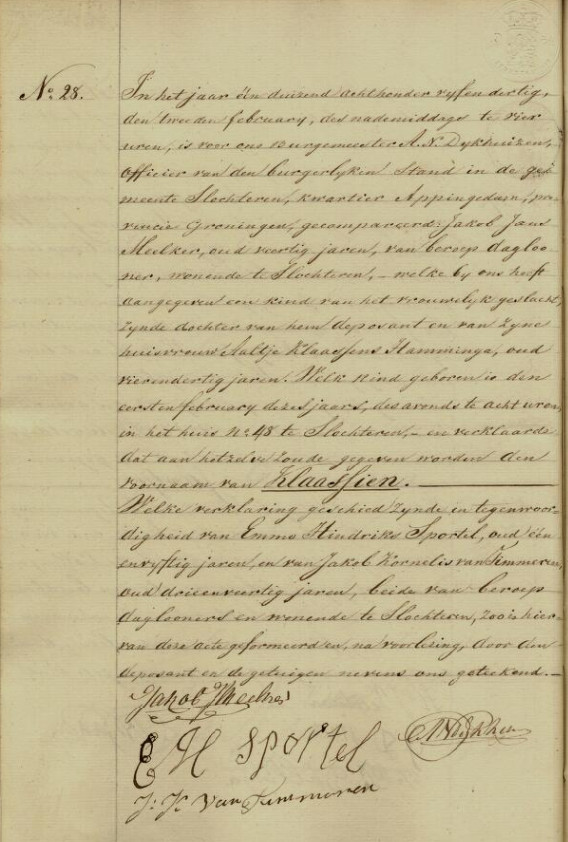 No. 28.
In het jaar één duizend achthonder vyfendertig,
den tweeden february, des nademiddags te vier
uren, is voor ons Burgemeester A. N. Dykhuizen,
officier van den burgerlyken Stand in de ge-
meente Slochteren, kwartier Appingedam, pro-
vincie Groningen, gecompareerd: Jakob Jans
Meelker, oud veertig jaren, van beroep dagloo-
ner, wonende te Slochteren, – welke by ons heeft
aangegeven een kind van het vrouwelyk geslacht,
zynde dochter van hem deposant en van zyne
huisvrouw Aaltje Klaassens Hamminga, oud
vierendertig jaren. Welk kind geboren is den
eersten february dezes jaars, des avonds te acht uren,
in het huis no. 48 te Slochteren, – en verklaarde
dat aan hetzelve zoude gegeven worden den
voornaam van Klaassien.
Welke verklaring geschied zynde in tegenwoor-
digheid van Emme Hindriks Sportel, oud één
envyftig jaren, en van Jakob Kornelis van Timmeren,
oud drieenveertig jaren, beide van beroep
daglooners en wonende te Slochteren, zoo is hier-
van deze acte geformeerd en, na voorlezing, door den
deposant en de getuigen nevens ons geteekend. –
Jakob J Meelker
E H Sportel
J: K: van Timmeren